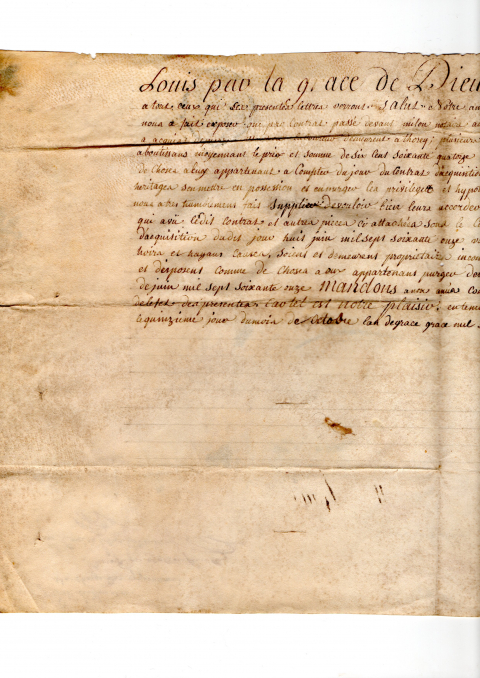 Louis par la grace de Dieu
a tous ceux qui ces presentes lettres verront salut notre am
nous a fait exposer que par Contrat passé devant milon notaire
a acquis demeurent a Choisy plusieurs
aboutissans moyennant le prix et somme de six Cent soixante quatorze
de Choses a eux appartenant a Compter du jour du Contrat d'acquisition
heritages se mettre en possession et en purger les privileges et hypot
nous a tres humblement fait supplier de vouloir bien leurs accorder
qui a vû ledit Contrat et autres pieces Cy attachées sous le
d'acquisition dudit jour huit juin mil sept soixante onze
hoirs et ayans Cause, soient et demeurent proprietaires incom
et disposent Comme de Choses a eux appartenans purgés de
de juin mil sept soixante onze Mandons a nos amés
de l'effet des presentes, Car tel est notre plaisir, en temoin
le quinzieme jour du mois de octobre l'an de grace grace mil